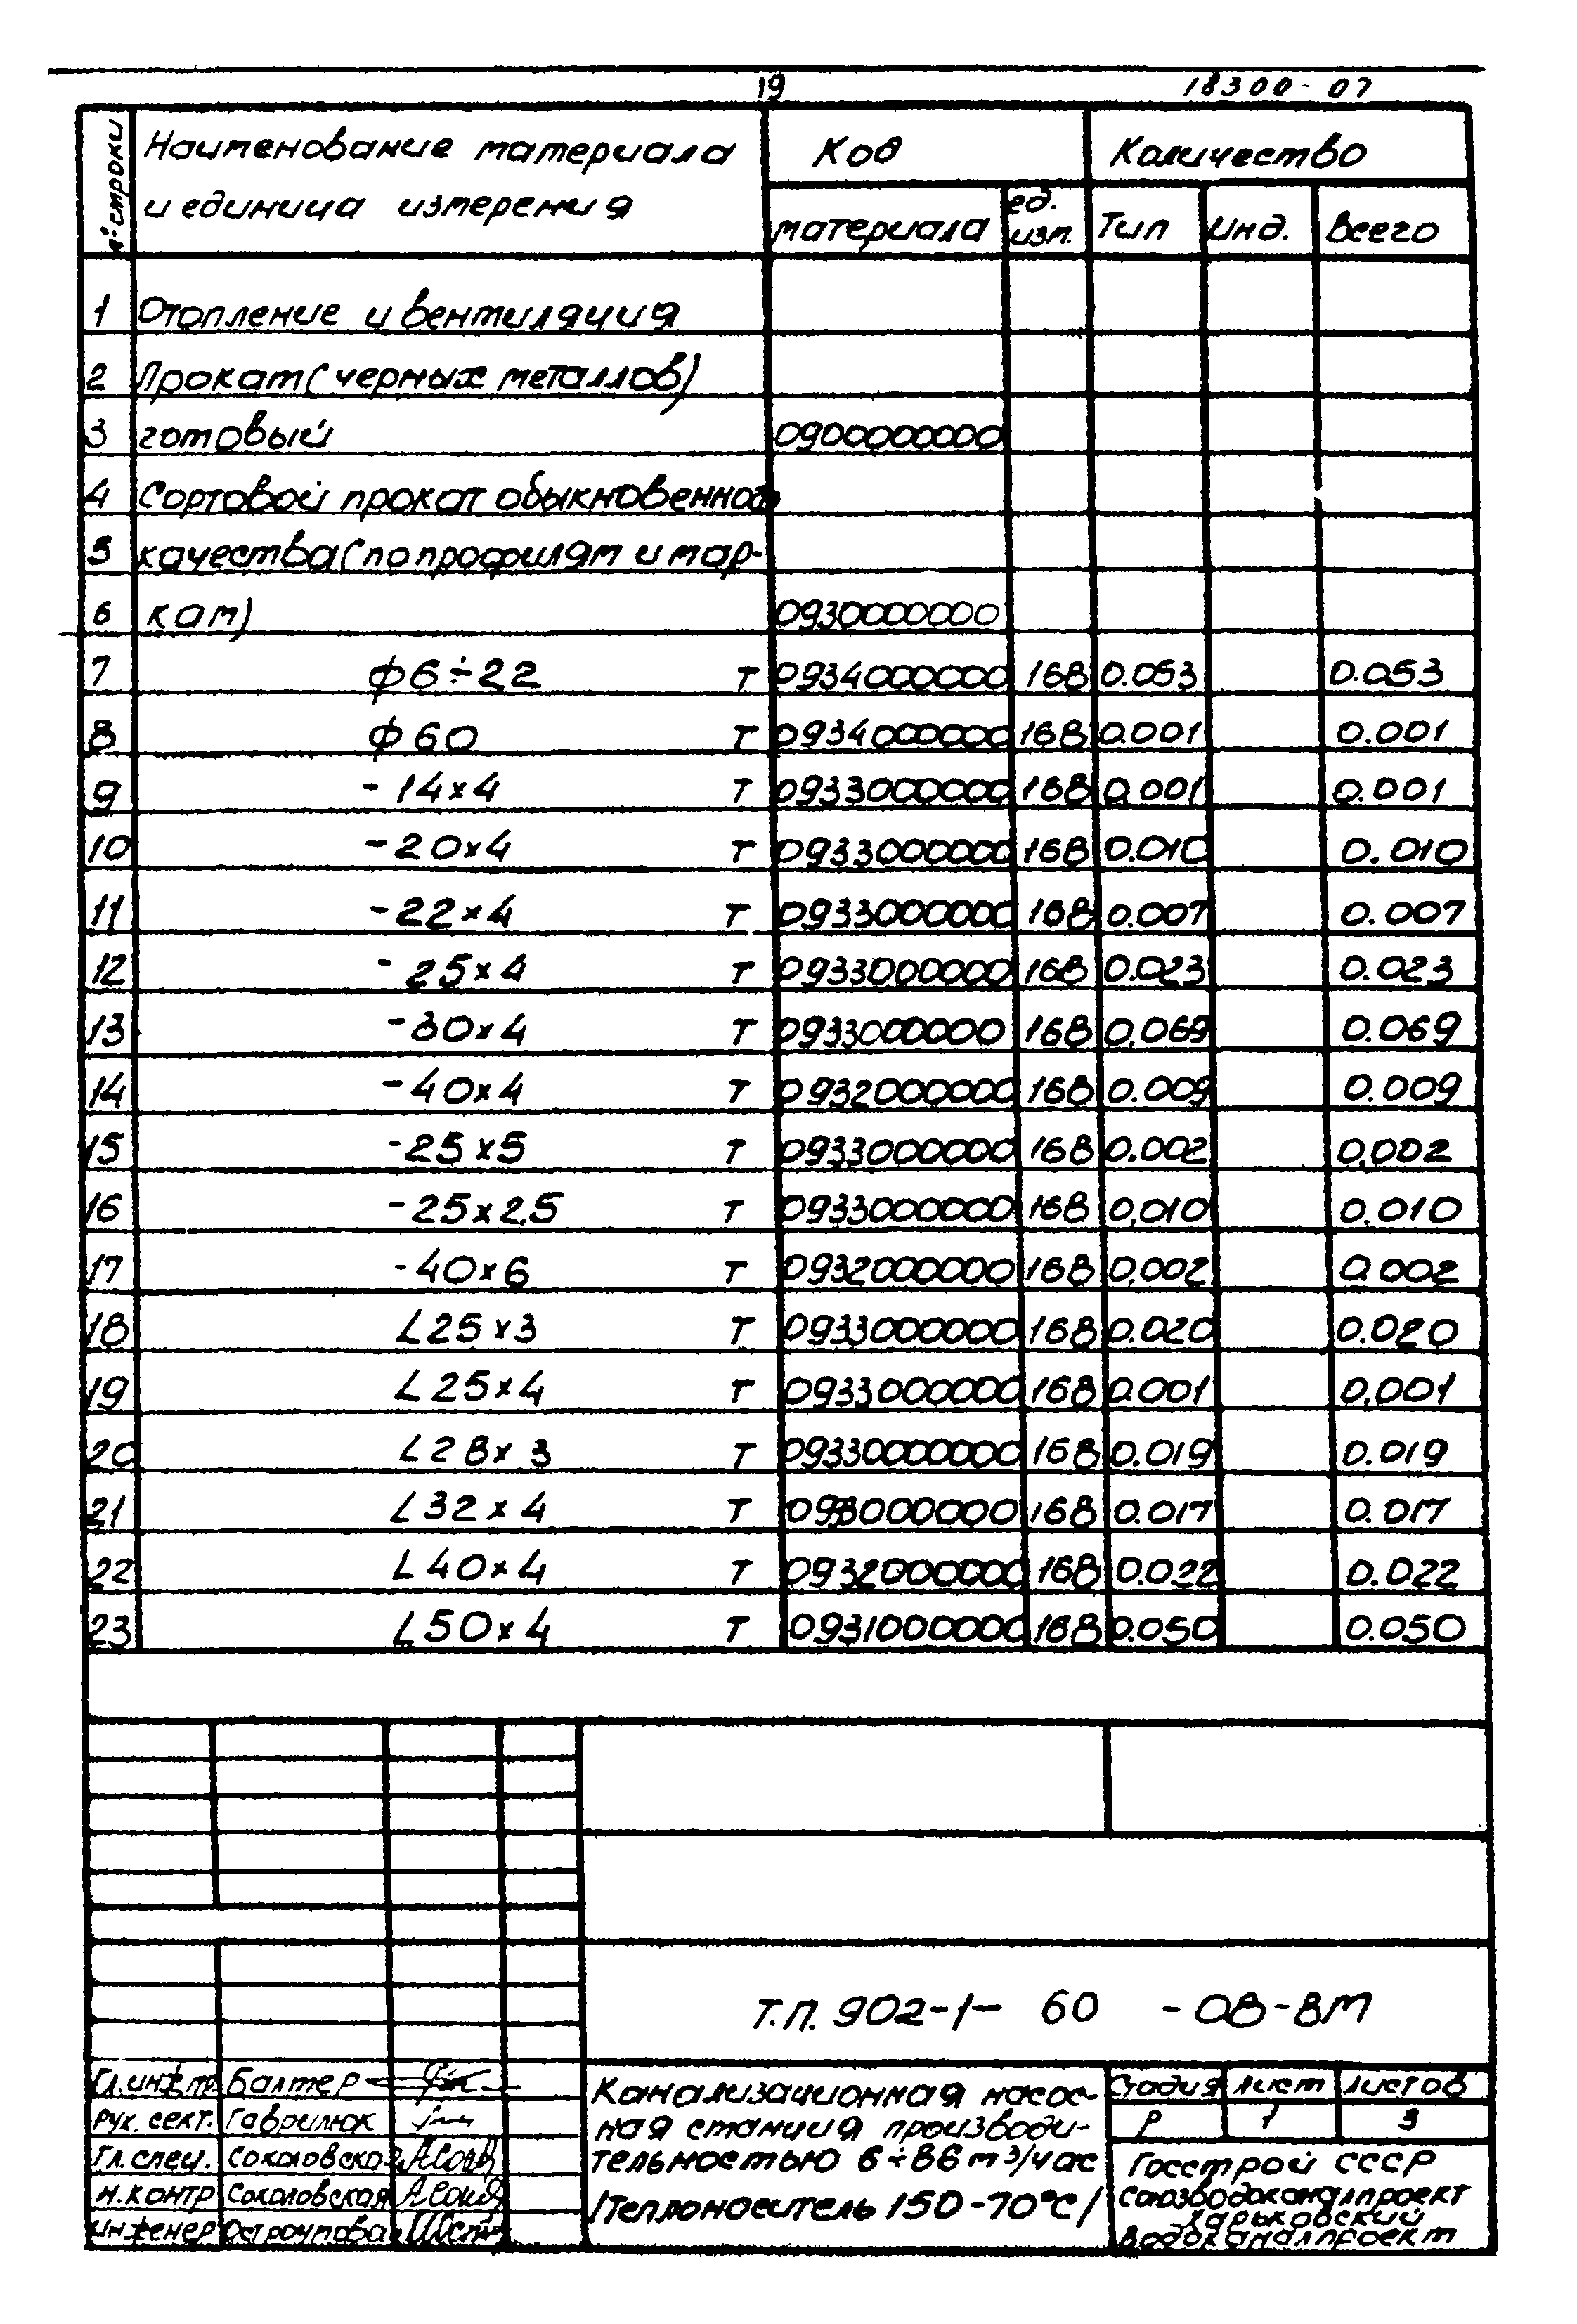 19
18300-07
№ строки
Наименование материала
и единица измерения
Код
Количество
материала
ед.
изм.
Тип
Инд.
Всего
1 Отопление и вентиляция
2 Прокат (черных металлов)
3 готовый 0900000000
4 Сортовой прокат обыкновенного
5 качества (по профилям и мар-
6 кам) 0930000000
7 ф6÷22 т 0934000000 168 0.053 0.053
8 ф60 т 0934000000 168 0.001 0.001
9 -14х4 т 0933000000 168 0.001 0.001
10 -20х4 т 0933000000 168 0.010 0.010
11 -22х4 т 0933000000 168 0.007 0.007
12 -25х4 т 0933000000 168 0.023 0.023
13 -30х4 т 0933000000 168 0,069 0.069
14 -40х4 т 0932000000 168 0.009 0.009
15 -25х5 т 0933000000 168 0.002 0,002
16 -25х2,5 т 0933000000 168 0,010 0,010
17 -40х6 т 0932000000 168 0.002 0.002
18 L25х3 т 0933000000 168 0.020 0.020
19 L25х4 т 0933000000 168 0.001 0,001
20 L28х3 т 0933000000 168 0.019 0.019
21 L32х4 т 168 0.017 0.017
22 L40х4 т 0932000000 168 0.022 0.022
23 L50х4 т 0931000000 168 0.050 0.050
Т.П. 902-1- 60 -08-ВМ
Гл.инж.пр Балтер
Рук. сект. Гаврилюк
Гл. спец. Соколовская
Н.контр Соколовская
Инженер
Канализационная насос-
ная станция производи-
тельностью 6÷86 м³/час
/Теплоноситель 150-70°С/
Стадия Лист Листов
Р 1 3
Госстрой СССР
Союзводоканалпроект
Харьковский
Водоканалпроект